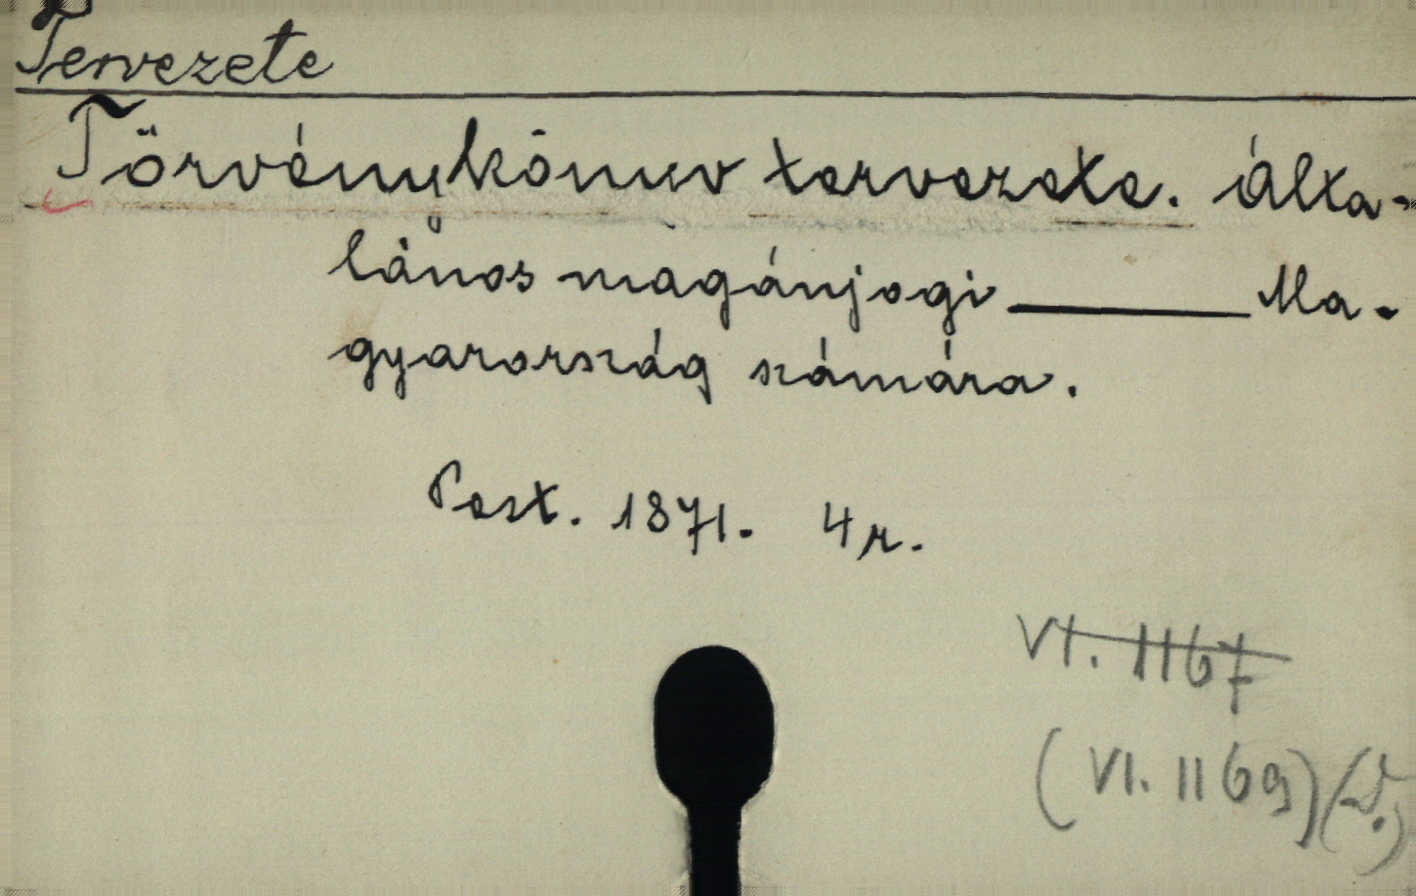 Tervezete
Törvénykönyv tervezete. Álta-
lános magánjogi ——— Ma-
gyarország számára.
Pest. 1871. 4r.
VI. 1167
(VI. 1169)